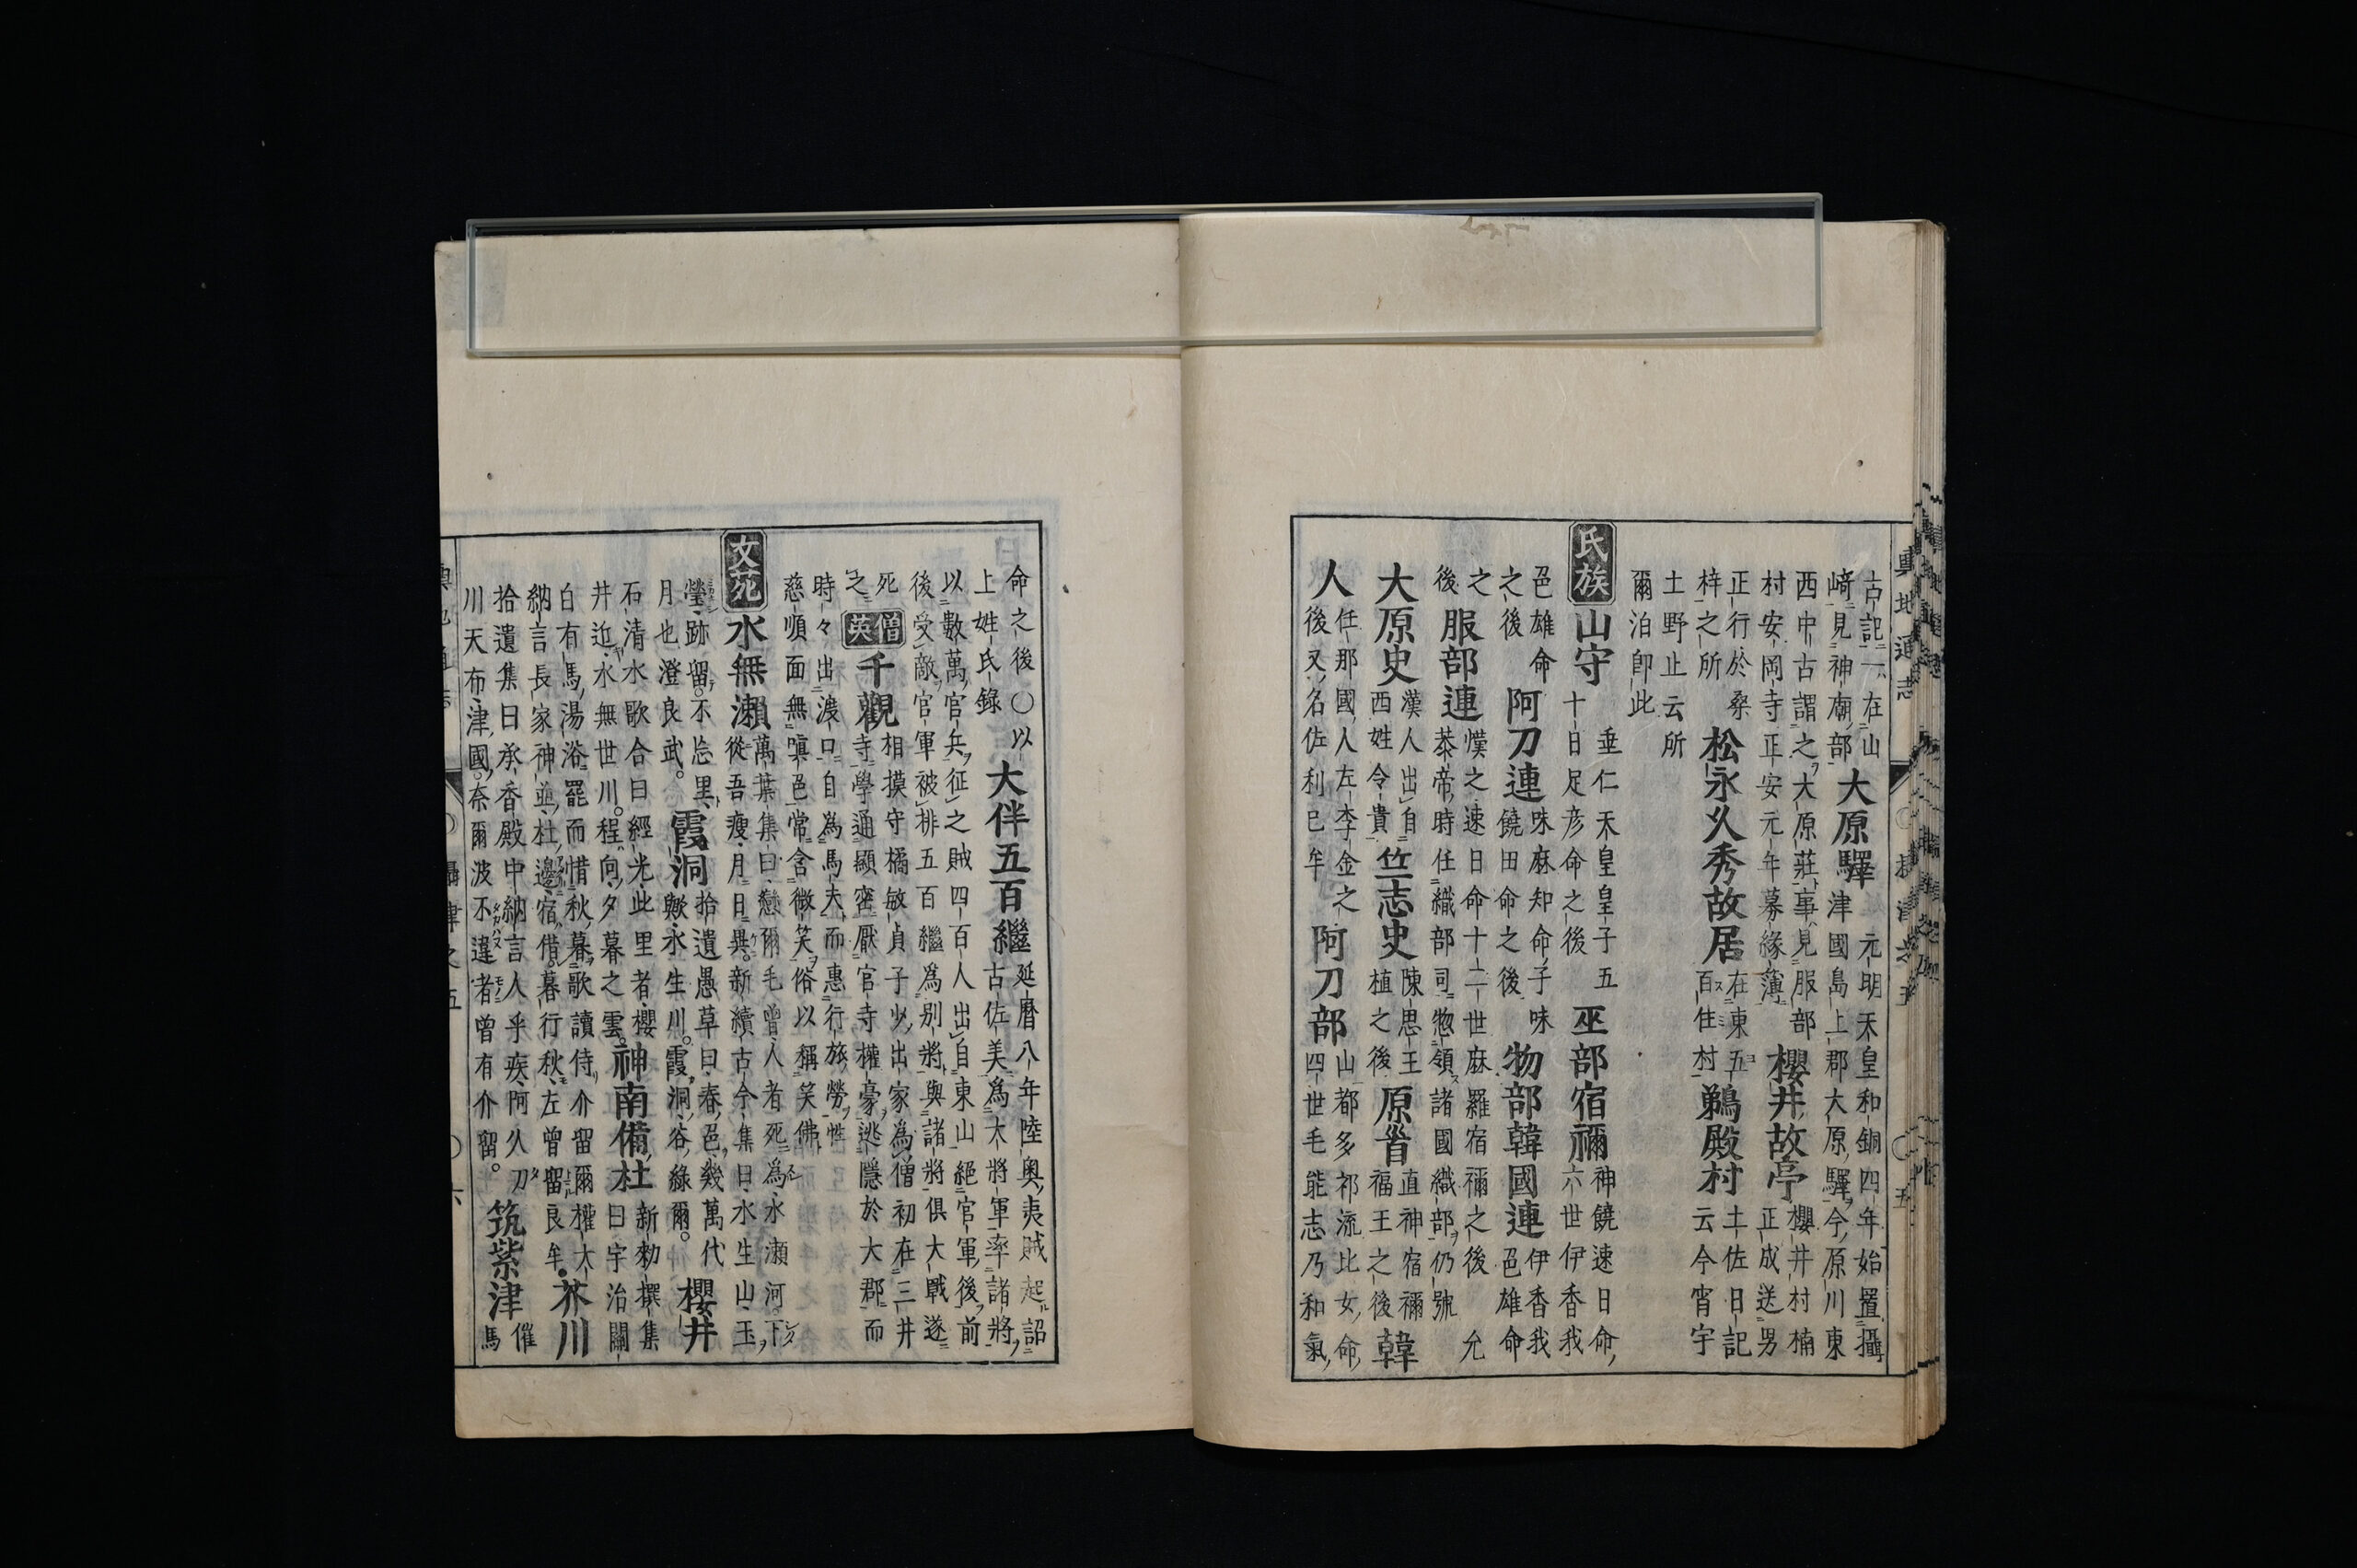 輿地通志
古記一在山
﨑見神廟部
大原驛
元明天皇和銅四年始置攝
津國島上郡大原驛今原川東
西中古謂之大原莊事見服部
村安岡寺正安元年募緣簿
櫻井故亭
櫻井村楠
正成送男
正行於桒
梓之所
松永久秀故居
在東五
百住村
鵜殿村
土佐日記
云今宵宇
土野止云所
爾泊卽此
氏族
山守
垂仁天皇皇子五
十日足彦命之後
巫部宿禰
神饒速日命
六世伊香我
邑雄命
之後
阿刀連
味麻知命子味
饒田命之後
物部韓國連
伊香我
邑雄命
之
後
服部連
熯之速日命十二世麻羅宿禰之後允
恭帝時任織部司惣領諸國織部仍號
大原史
漢人出自
西姓令貴
竺志史
陳思王
植之後
原首
直神宿禰
福王之後
韓
人
任那國人左李金之
後又名佐利已牟
阿刀部
山都多祁流比女命
四世毛能志乃和氣
命之後〇以
上姓氏錄
大伴五百繼
延曆八年陸奧夷賊起詔
古佐美為大將軍率諸將
以數萬官兵征之賊四百人出自東山絕官軍後前
後受敵官軍被排五百繼為別將與諸將俱大戰遂
死
之
僧英
千觀
相摸守橘敏貞子少出家為僧初在三井
寺學通顯密厭官寺權豪逃隱於大郡而
時々出渡口自為馬夫而惠行旅勞性
慈順面無嗔邑常含微笑俗以稱笑佛
文苑
水無瀨
萬葉集曰戀爾毛曾人者死為水瀨河下
從吾瘦月日異新續古今集曰水生山玉
瑩跡留不忘里
月也澄良武
霞洞
拾遺愚草曰春邑幾萬代
歟水生川霞洞谷綠爾
櫻井
石清水歌合曰經光此里者櫻
井近水無世川程向夕暮之雲
神南備杜
新勅撰集
曰宇治關
白有馬湯浴罷而惜秋暮歌讀侍介留爾權大
納言長家神並杜邊宿借暮行秋左曾留良牟
芥川
拾遺集曰承香殿中納言人乎疾阿久刀
川天布津國奈爾波不違者曾有介留
筑紫津
催
馬